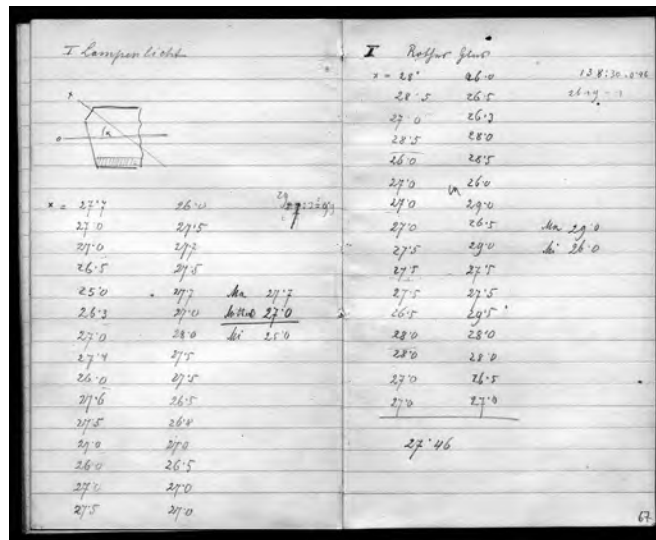 I Lampenlicht
x
o
x = 27·7 26·0
27·0 27·5
27·0 27·7
26·5 27·5
25·0 27·7 Ma 27·7
26·3 27·0 Mittel 27·0
27·0 28·0 Mi 25·0
27·4 27·5
26·0 27·5
27·6 26·5
27·5 26·8
27·0 27·0
26·0 26·5
27·0 27·0
27·5 27·0
II Rothes Glas
x = 28· 26·0
28·5 26·5
27·0 26·3
28·5 28·0
26·0 28·5
27·0 26·0
27·0 29·0
27·0 26·5 Ma 29·0
27·5 29·0 Mi 26·0
27·5 27·5
27·5 27·5
26·5 29·5
28·0 28·0
28·0 28·0
27·0 26·5
27·0 27·0
27·46
67